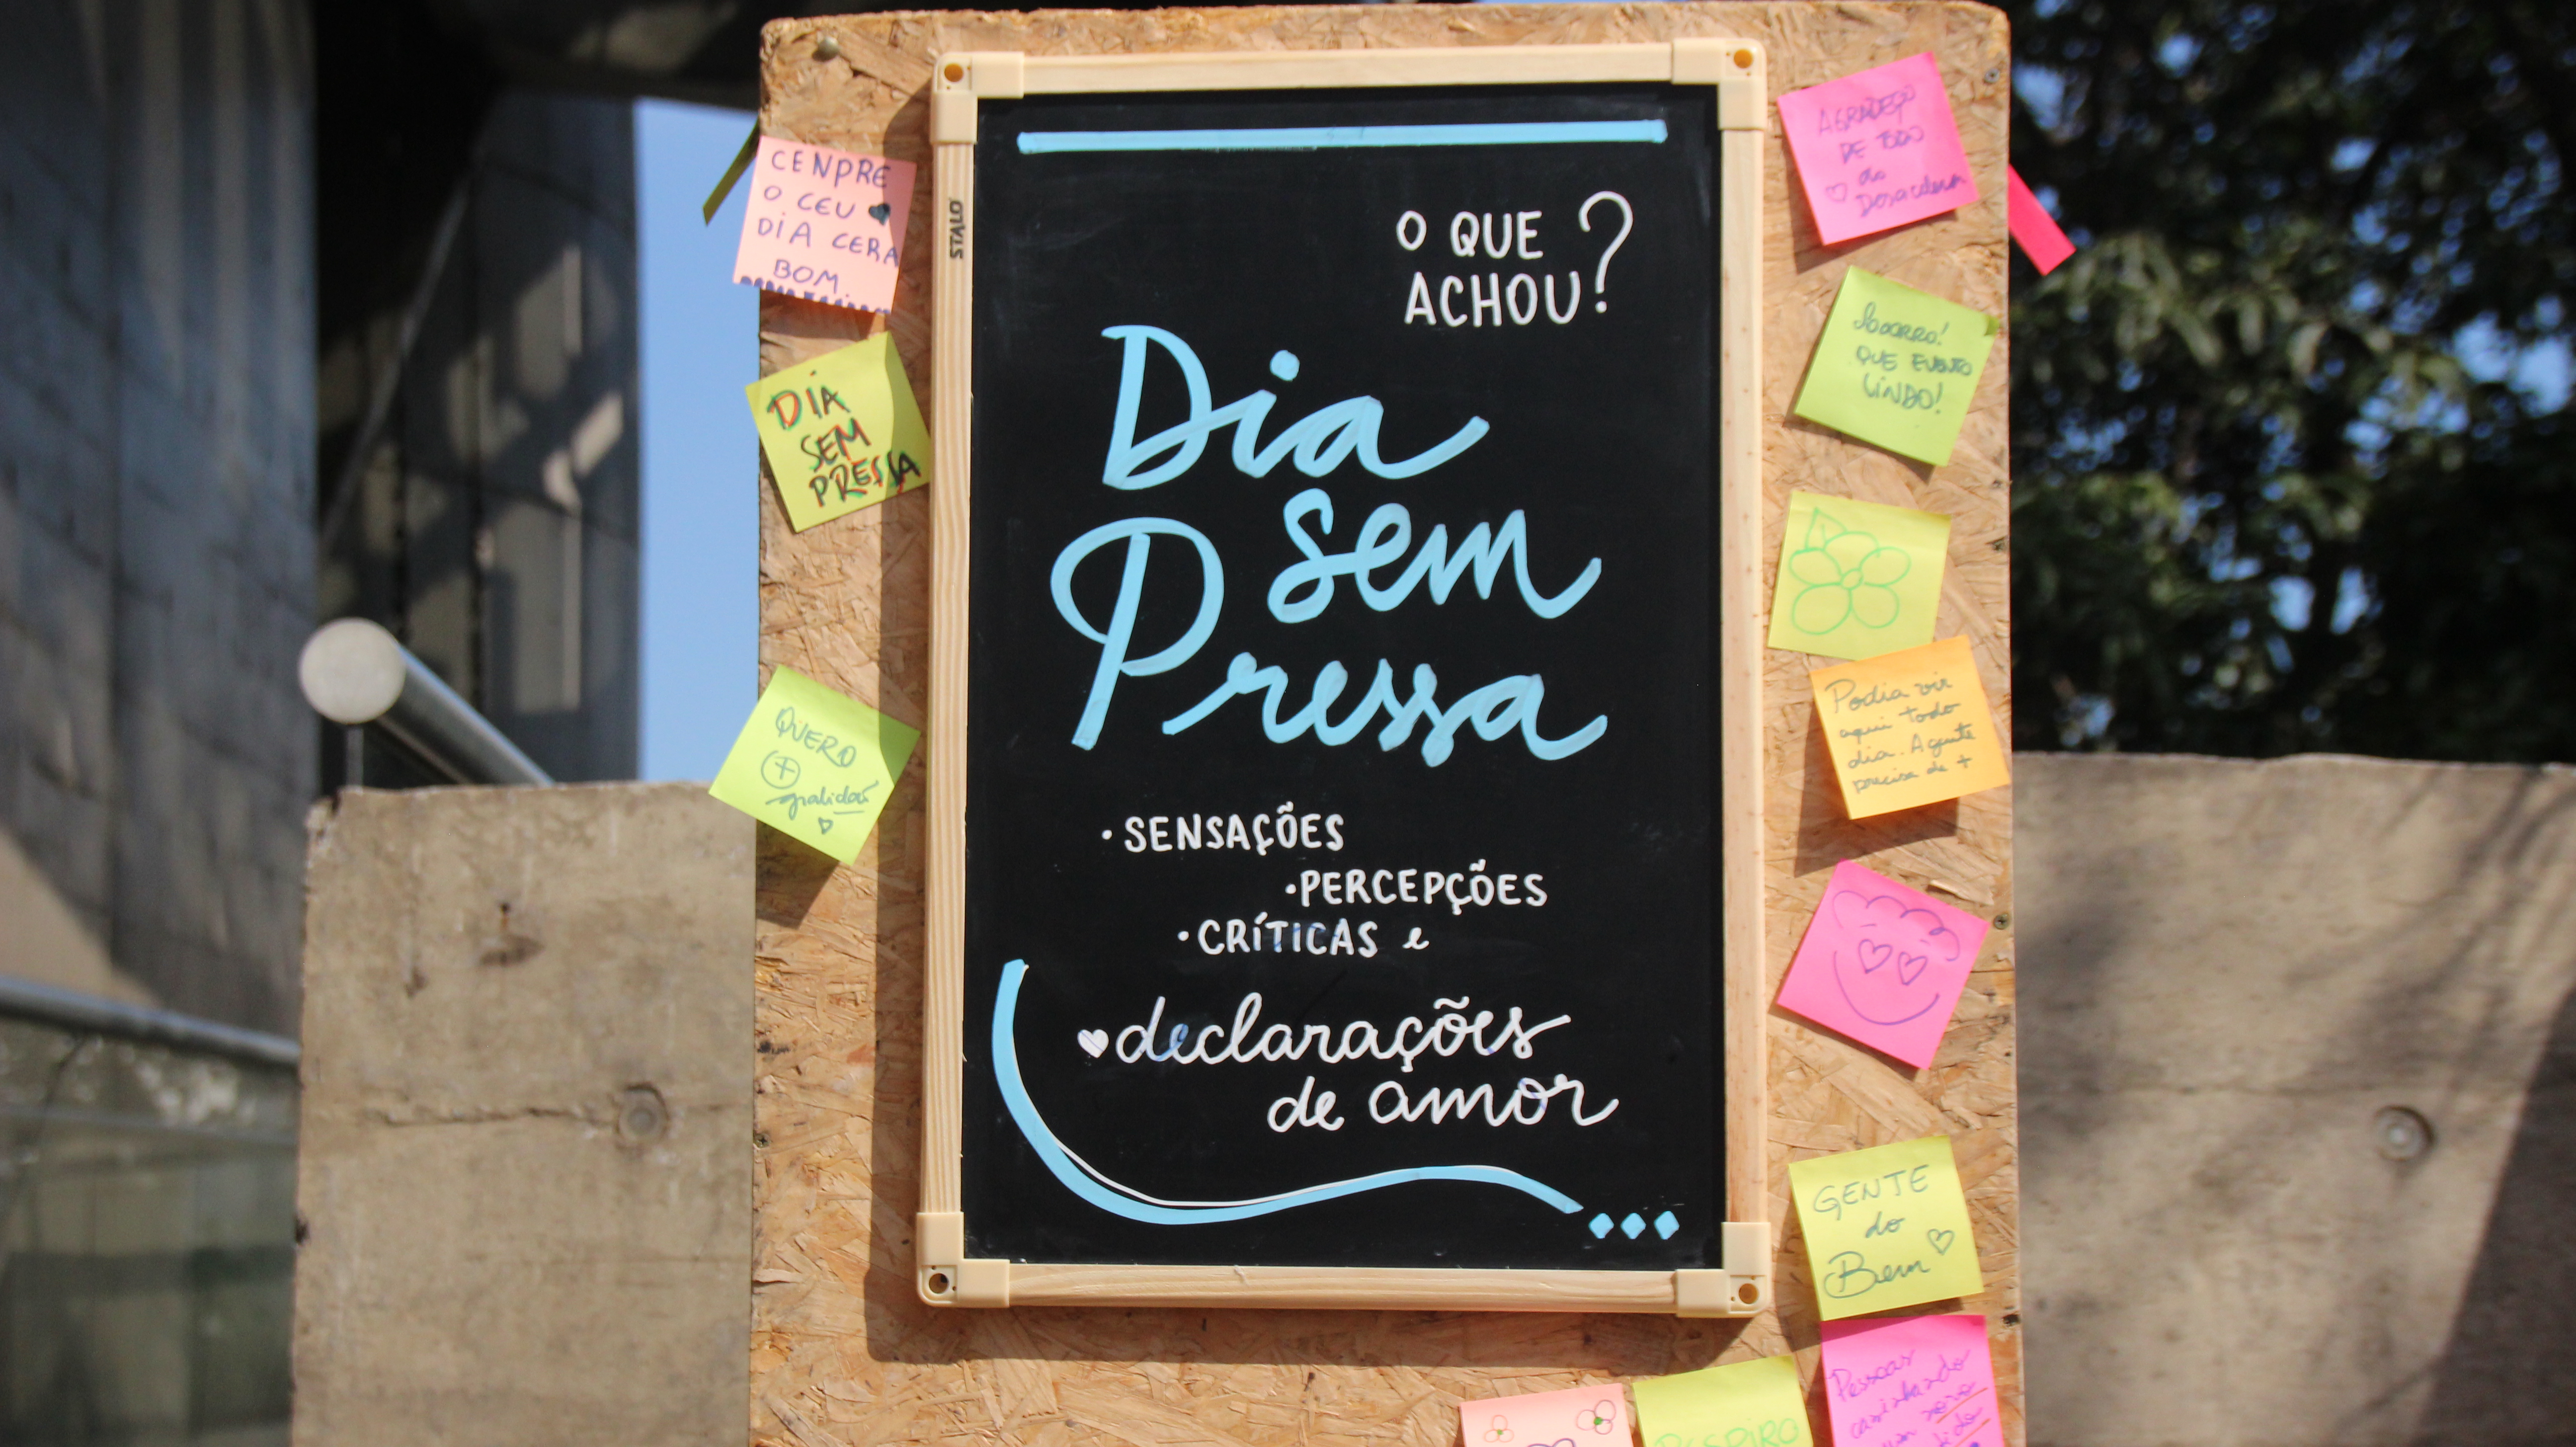 O QUE
ACHOU?
Dia
sem
Pressa
• SENSAÇÕES
• PERCEPÇÕES
• CRÍTICAS e
declarações
de amor
STALO
CENPRE
O CEU
DIA CERA
BOM
DIA
SEM
PRESSA
QUERO
+
gratidão
AGRADEÇO
DE TODO
Socorro!
QUE EVENTO
LINDO!
Podia vir
aqui todo
dia. A gente
precisa de +
GENTE
do
Bem
RESPIRO
Pessoas
caminhando